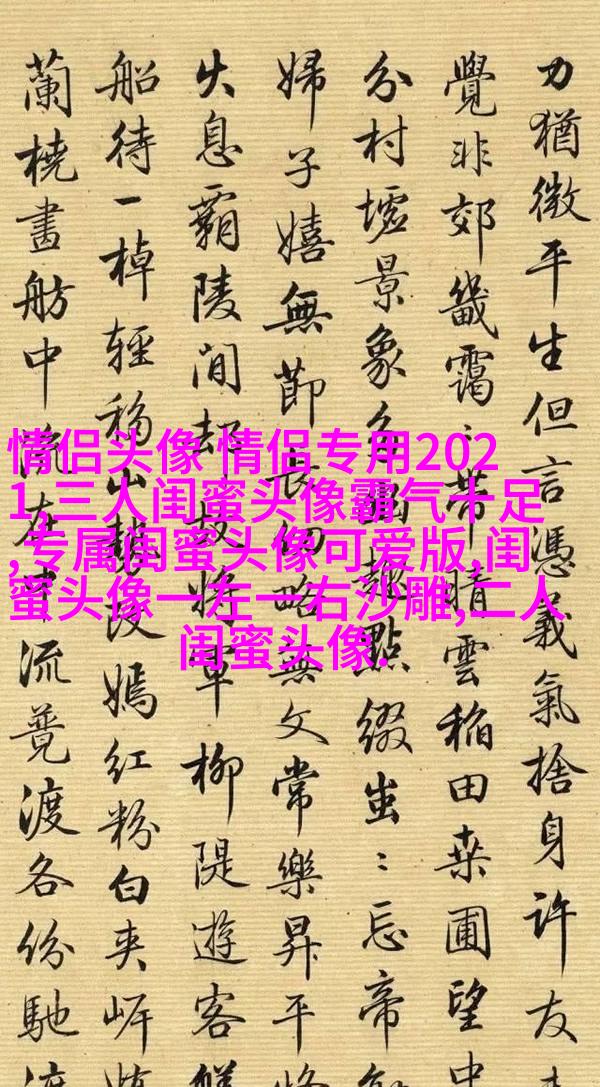 力猶微平生但言憑義氣捨身許友
覺非郊畿靄〻帶晴雲稻田桑圃望中
分村墟景象點綴蚩〻忘帝
婦子嬉無節長幼略無文常樂昇平
息霸陵間却故將軍柳隄遊客
船待一棹輕移出段嫣紅粉白夾岸
蘭橈畫舫中流在流覽渡各份馳
情侣头像 情侣专用202
1,三人闺蜜头像霸气十足
,专属闺蜜头像可爱版,闺
蜜头像一左一右沙雕,二人
闺蜜头像.